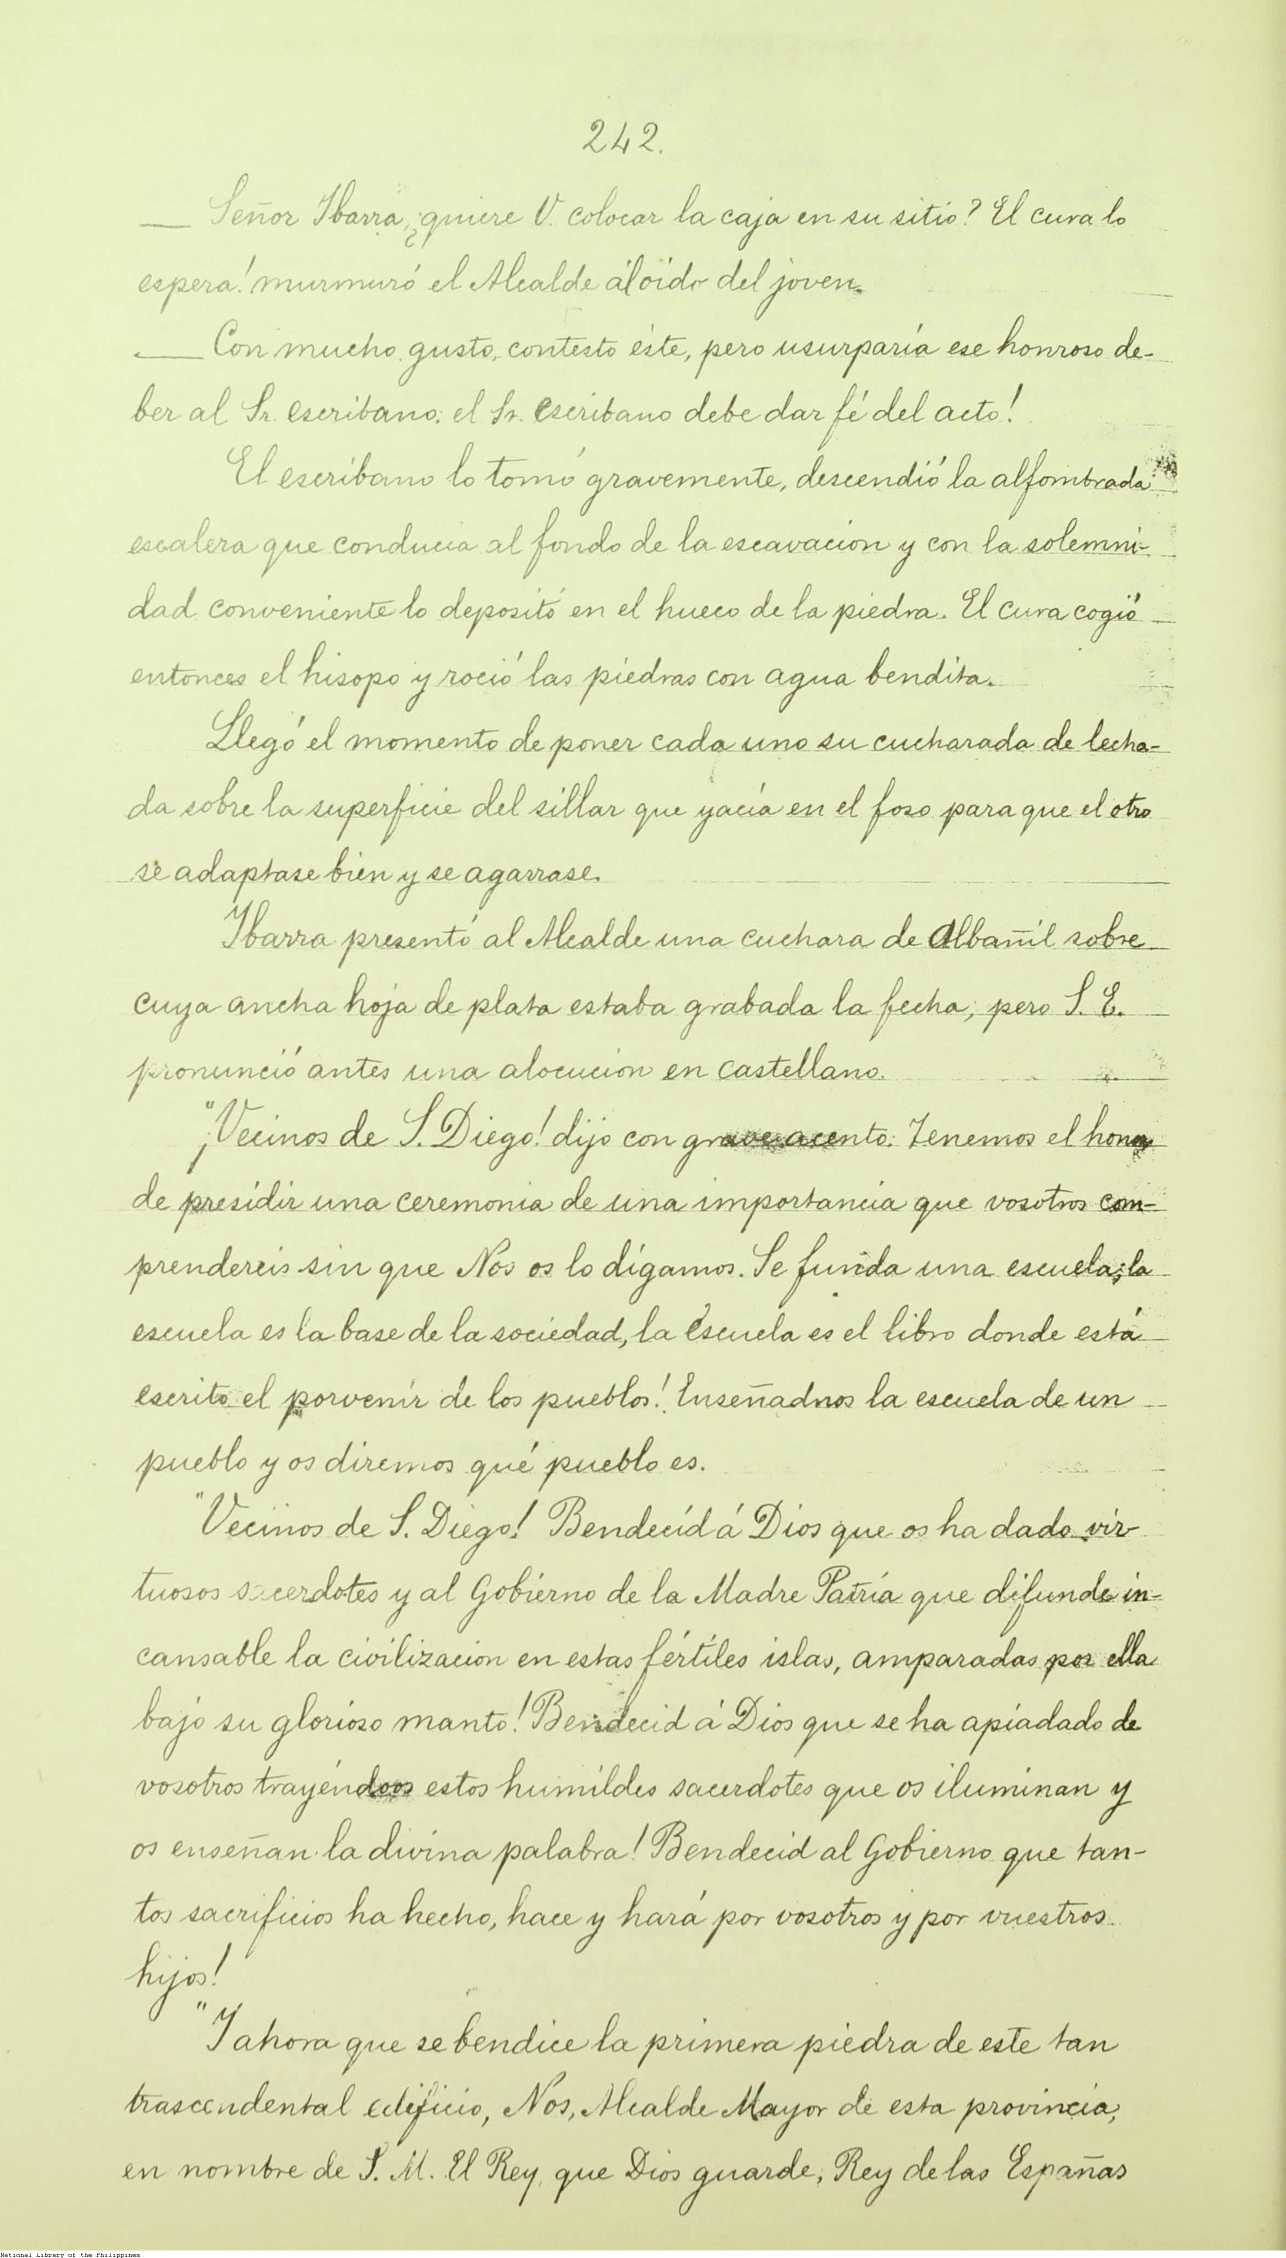 242.
— Señor Ibarra, ¿quiere V. colocar la caja en su sitio? El cura lo
espera! murmuró el Alcalde al oido del joven.
— Con mucho gusto, contestó éste, pero usurparía ese honroso de-
ber al Sr. escribano; el Sr. escribano debe dar fé del acto!
El escribano lo tomó gravemente, descendió la alfombrada
escalera que conducia al fondo de la escavacion y con la solemni-
dad conveniente lo depositó en el hueco de la piedra. El cura cogió
entonces el hisopo y roció las piedras con agua bendita.
Llegó el momento de poner cada uno su cucharada de lecha-
da sobre la superficie del sillar que yacía en el foso para que el otro
se adaptase bien y se agarrase.
Ibarra presentó al Alcalde una cuchara de albañil sobre
cuya ancha hoja de plata estaba grabada la fecha; pero S. E.
pronunció antes una alocucion en castellano.
"¡Vecinos de S. Diego! dijo con grave acento. Tenemos el honor
de presidir una ceremonia de una importancia que vosotros com-
prendereis sin que Nos os lo digamos. Se funda una escuela; la
escuela es la base de la sociedad, la escuela es el libro donde está
escrito el porvenir de los pueblos! Enseñadnos la escuela de un
pueblo y os diremos qué pueblo es.
"Vecinos de S. Diego! Bendecid á Dios que os ha dado vir-
tuosos sacerdotes y al Gobierno de la Madre Patria que difunde in-
cansable la civilizacion en estas fértiles islas, amparadas por ella
bajo su glorioso manto! Bendecid á Dios que se ha apiadado de
vosotros trayéndoos estos humildes sacerdotes que os iluminan y
os enseñan la divina palabra! Bendecid al Gobierno que tan-
tos sacrificios ha hecho, hace y hará por vosotros y por vuestros
hijos!
"Y ahora que se bendice la primera piedra de este tan
trascendental edificio, Nos, Alcalde Mayor de esta provincia,
en nombre de S. M. El Rey, que Dios guarde, Rey de las Españas
National Library of the Philippines